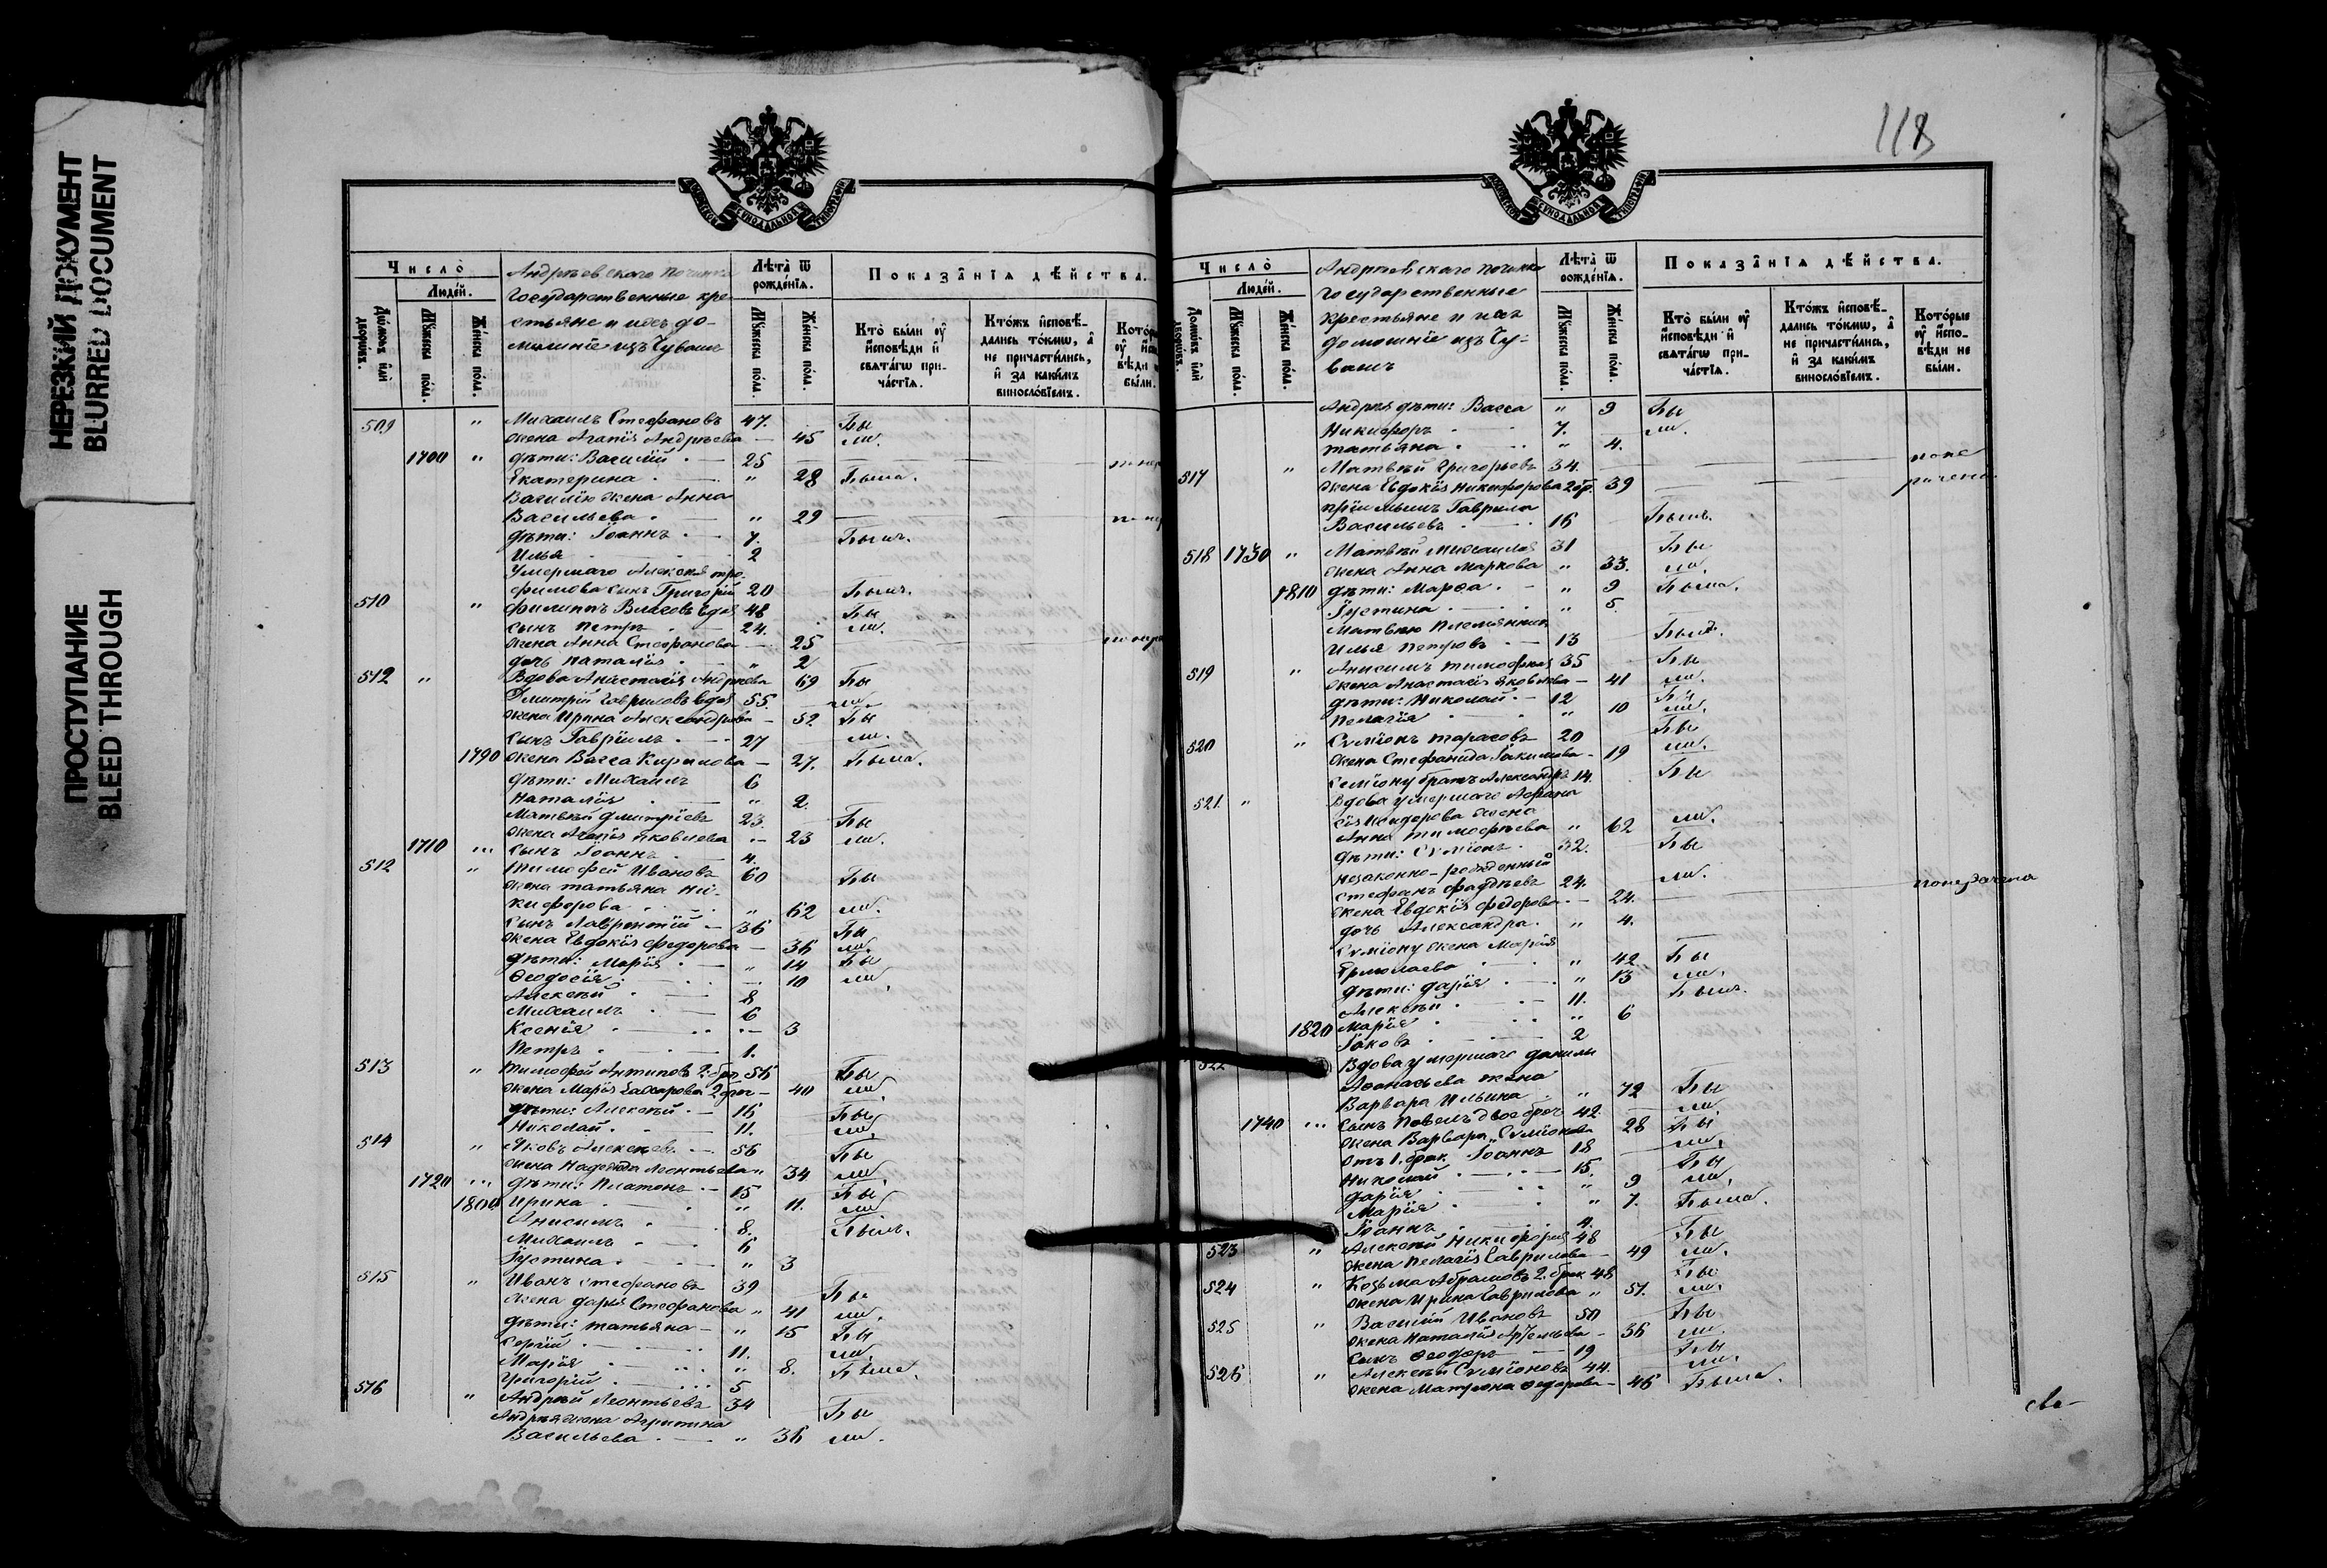 НЕРЕЗКИЙ ДОКУМЕНТ
BLURRED DOCUMENT
ПРОСТУПАНИЕ
BLEED THROUGH
Число̀
Людей.
Домѡвъ или дворѡвъ.
Мꙋжеска пола.
Женска пола.
Андреевскаго починка
Государственные кре-
стьяне и ихъ до-
машніе изъ Чувашъ
Лѣта ѿ рожденїѧ.
Мꙋжеска пола.
Женска пола.
Показанїѧ дѣйства.
Кто были оу исповѣди и свѧтагѡ причастїѧ.
Ктожъ исповѣдались токмѡ, а не причастились, и за какимъ винословїемъ.
509 " Михаилъ Стефановъ 47. Бы
жена Агапія Андреева — 45 ли.
1700 " дѣти: Василій 25
Екатерина " 28 Была.
Василію жена Анна
Васильева " 29
дѣти: Іоаннъ 7. Былъ.
Илья 2
Умершаго Алексѣя Тро-
фимова сынъ Григорій 20 Былъ.
510 " Филиппъ Власовъ вдов 48 Бы
сынъ Петръ 24. ли.
жена Анна Стефанова — 25
дочь Наталія " 2
512 " Вдова Анастасія Андреева 69 Бы
Дмитрій Гавриловъ вдов 55 ли.
жена Ирина Александрова — 52. Бы
сынъ Гавріилъ 27 ли.
1790 жена Васса Кирилова — 27. Была.
дѣти: Михаилъ 6
Наталія " 2.
Матвѣй Дмитріевъ 23. Бы
жена Агапія Яковлева — 23 ли.
1710 ... сынъ Іоаннъ 4.
512 " Тимофей Ивановъ 60 Бы
жена Татьяна Ни-
кифорова " 62 ли.
сынъ Лаврентій 36 Бы
жена Евдокія Федорова — 36 ли.
дѣти: Марія " 14 Бы
Ѳеодосія — 10 ли.
Алексѣй 8
Михаилъ 6
Ксенія — 3
Петръ 1.
513 " Тимофей Антиповъ 2 бра 56 Бы
жена Марія Захарова 2 бра — 40 ли.
дѣти: Алексѣй 16 Бы
Николай 11. ли.
514 " Яковъ Алексѣевъ 56 Бы
жена Надежда Леонтьева " 34 ли.
1720 ... дѣти: Платонъ 15 Бы
1800 Ирина " 11. ли
Анисимъ 8. Былъ.
Михаилъ 6
Іустина " 3
515 " Иванъ Стефановъ 39 Бы
жена Дарія Стефанова " 41 ли.
дѣти: Татьяна " 15 Бы
Сергій 11. ли.
Марія " 8. Была.
Григорій 5
516 " Андрей Леонтьевъ 34 Бы
Андрея жена Агрипина
Васильева " 36 ли.
118
Число̀
Людей.
Домѡвъ или дворѡвъ.
Мꙋжеска пола.
Женска пола.
Андреевскаго починка
Государственные
крестьяне и ихъ
домашніе изъ Чу-
вашъ
Лѣта ѿ рожденїѧ.
Мꙋжеска пола.
Женска пола.
Показанїѧ дѣйства.
Кто были оу исповѣди и свѧтагѡ причастїѧ.
Ктожъ исповѣдались токмѡ, а не причастились, и за какимъ винословїемъ.
Которые оу исповѣди не были.
Андрея дѣти: Васса " 9 Бы
Никифоръ 7. ли.
Татьяна " 4.
517 " Матвѣй Григорьевъ 34. поне
жена Евдокія Никифорова 2 бр. 39 рачен
пріимышъ Гаврила
Васильевъ 16 Былъ.
518 1730 " Матвѣй Михаиловъ 31 Бы
жена Анна Маркова " 33. ли.
1810 дѣти: Марѳа " 9 Была.
Іустина " 5.
Матвѣю племянникъ
Илья Петровъ 13 Былъ.
519 " Анисимъ Тимофѣевъ 35 Бы
жена Анастасія Яковлева — 41 ли.
дѣти: Николай 12 Бы
Пелагія " 10 ли.
520 " Сѵмеонъ Тарасовъ 20 Бы
жена Стефанида Іакимова — 19 ли.
Семіону братъ Александръ 14. Бы
521. " Вдова умершаго Аѳана-
сія Исидорова жена
Анна Тимофѣева " 62 ли.
дѣти: Сѵміонъ 32. Бы
незаконно-рожденный
Стефанъ Фаддѣевъ 24. ли.
жена Евдокія Федорова — 24. понерачена
дочь Александра " 4.
Сѵміону жена Марія
Ермолаева " 42 Бы
дѣти: Дарія " 13 ли.
Алексѣй 11. Былъ.
1820 Марія " 6
Іаковъ 2
522 Вдова умершаго Данилы
Аѳанасьева жена
Варвара Ильина " 72 Бы
1740 ... сынъ Павелъ двоебрач 42. ли.
жена Варвара Сѵміонова 28 Бы
Отъ 1. брак. Іоаннъ 18 ли.
Николай 15. Бы
Дарія " 9 ли.
Марія " 7. Была.
Іоаннъ 4.
523 " Алексѣй Никифоровъ 48 Бы
жена Пелагія Гаврилова — 49 ли.
524 " Козьма Абрамовъ 2 брак 48 Бы
жена Ирина Гаврилова " 51. ли.
525 " Василій Ивановъ 50 Бы
жена Наталія — 36 ли.
сынъ Ѳеодоръ 19 Бы
526 " Алексѣй Сѵміоновъ 44. ли.
жена Матрона Ѳедорова — 46 Была.